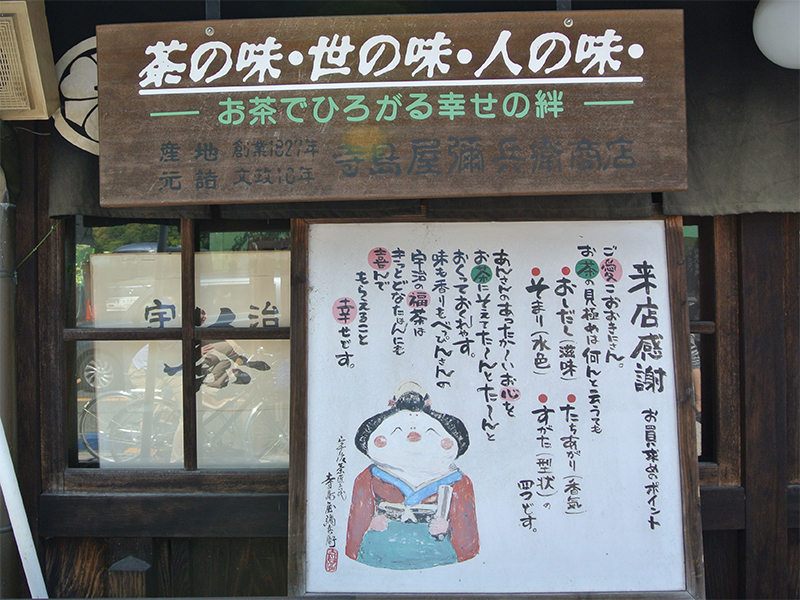 茶の味・世の味・人の味・
お茶でひろがる幸せの絆
産地 創業1827年
元詰 文政10年
寺島屋彌兵衛商店
宇治
来店感謝 お買求めのポイント
ご愛こおおきにさん。
お茶の見極めは何んと云うても
・おーだし(滋味) ・たちあがり(香気)
・そまり(水色) ・すがた(型状)の
四つどす。
あんさんのあったかーいお心を
お茶にそえてたーんとたーんと
おくっておくれやす。
味も香りもべっぴんさんの
宇治の福茶は
きっとどなたはんにも
喜んで
もらえること
幸せどす。
寺島屋彌兵衛